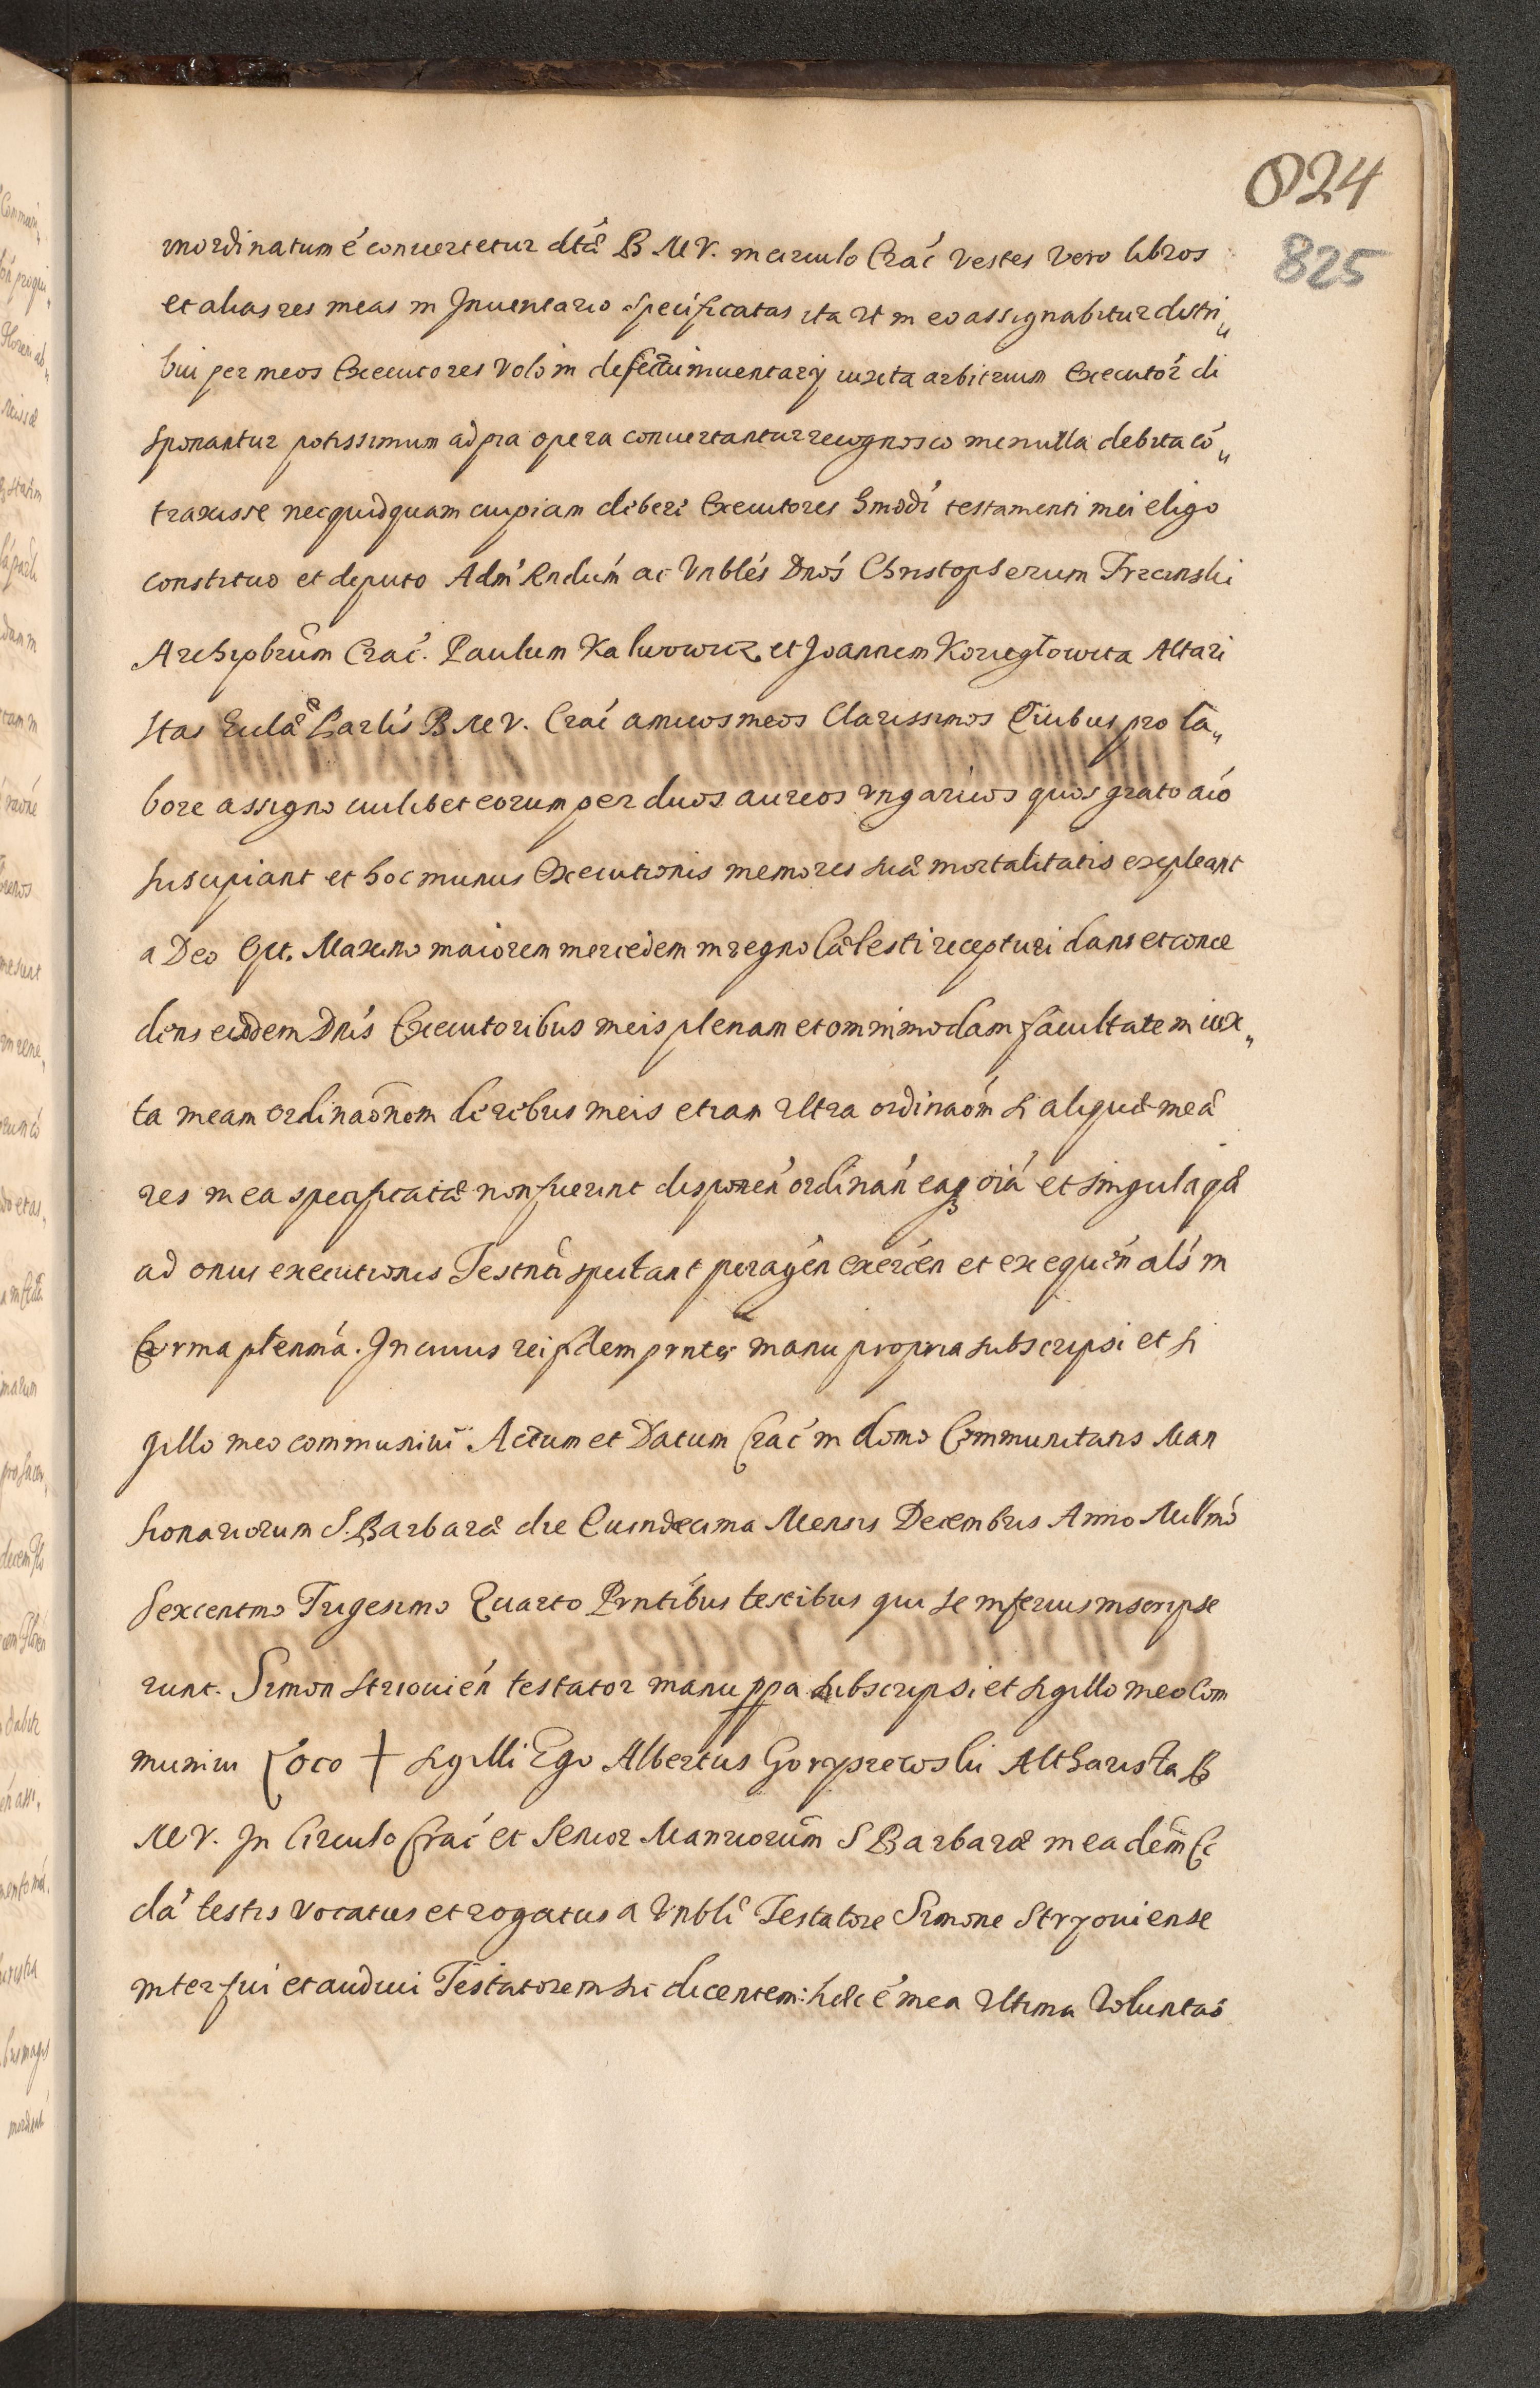 824
825
inordinatum é conuertetur dtæ B M V. in circulo Crac̕ vestes vero libros
et alias res meas in Inuentario specificatas ita vt in eo assignabitur distri„
bui per meos Executores volo in defectu inuentarij iuxta arbitrium Executor̕ di
sponantur potissimum ad pia opera conuertantur recognosco me nulla debita có„
traxisse nec quidquam cuipiam deberi Executores hmodi testamenti mei eligo
constituo et deputo Adm̕ Rndum̕ ac Vnbles̕ Dnos̕ Christopherum Trzcinski
Archipbrum̃ Crac̕. Paulum Kaluowicz et Joannem Koziegłowita Altari
stas Eccliæ Parlis̕ B M V. Crac̕ amicos meos Clarissimos Quibus pro la„
bore assigno cuilibet eorum per duos aureos vngaricos quos grato aío
suscipiant et hoc munus Executionis memores suæ mortalitatis expleant
a Deo Opt. Maximo maiorem mercedem in regno Cælesti recepturi dans et conce
dens eisdem Dnis̕ Executoribus meis plenam et omnimodam facultatem iux„
ta meam ordinaõnem de rebus meis etiam vltra ordinaóm si aliquæ meæ
res mea specificatæ non fuerint disponen̕ ordinan̕ eaqꝫ oía et singula quæ
ad onus executionis Testnti spectant peragen̕ exercen̕ et exequen̕ als̕ in
forma plenma̕. In cuius rei fidem prntes̕ manu propria subscripsi et si
gillo meo communiui Actum et Datum Crac̕ in domo Communitatis Man
sionariorum S. Barbaræ die Quindecima Mensis Decembris Anno Millmó
sexcentmo Trigesimo Quarto Prntibus̕ testibus qui se inferius inscripse
runt. Simon Striouien̕ testator manu ppa subscripsi et sigillo meo com
muniui Loco + sigilli Ego Albertus Goryszewski Altharista B
M V. In Circulo Crac̕ et Senior Manriorum̃ S Barbaræ in eadem̃ Ec
cla̕ testis vocatus et rogatus a Vnbli̕ Testatore Simone Stryouiense
interfui et audiui Testatorem sic dicentem: hæc é mea vltima Voluntas